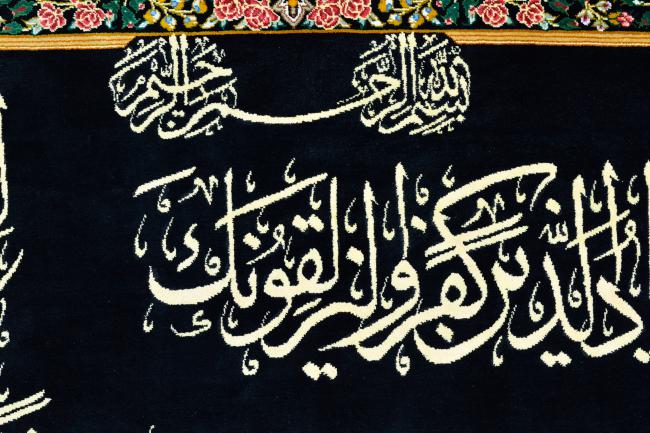 بسم الله الرحمن الرحيم
اد الذين كفروا ليزلقونك